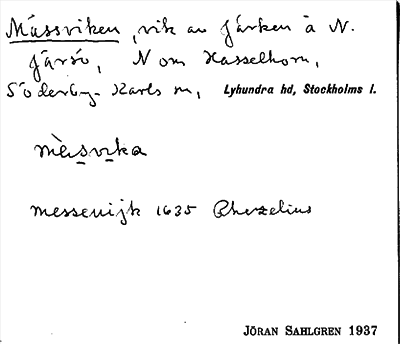 Mässviken, vik av Järken å N.
Järsö, N om Hasselhorn,
Söderby-Karls sn, Lyhundra hd, Stockholms l.
mèsvika
messevijk 1635 Rhezelius
JÖRAN SAHLGREN 1937